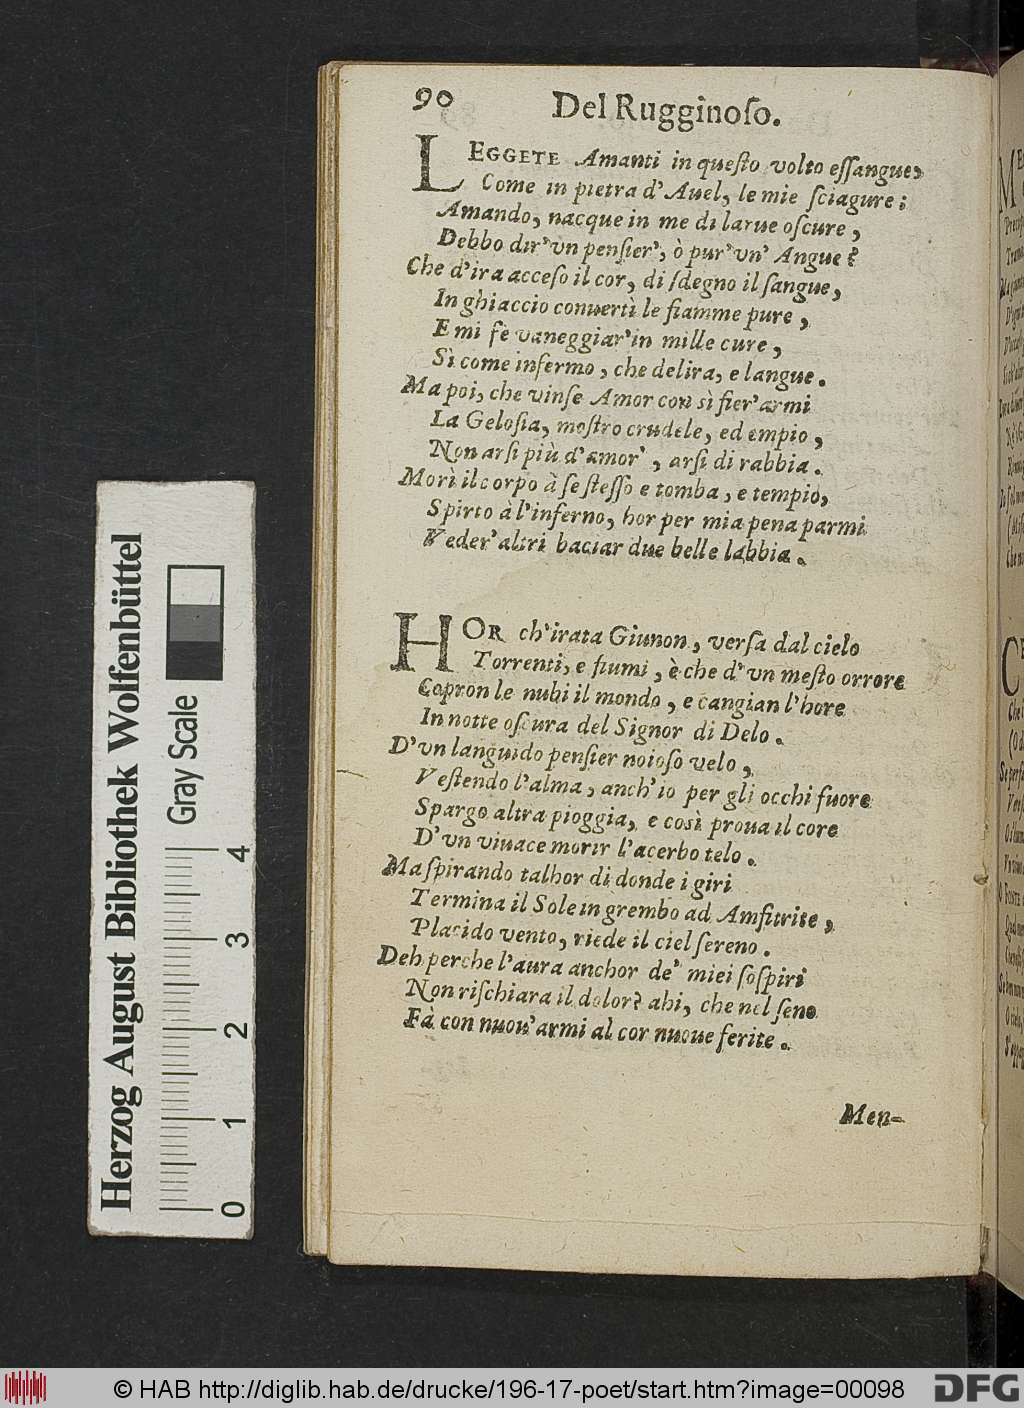 90 Del Rugginoſo.
LEGGETE Amanti in queſto volto eſſangue,
Come in pietra d'Auel, le mie ſciagure:
Amando, nacque in me di larue oſcure,
Debbo dir'vn penſier', ò pur'vn' Angue?
Che d'ira acceſo il cor, di ſdegno il ſangue,
In ghiaccio conuertì le fiamme pure,
E mi fè vaneggiar'in mille cure,
Sì come infermo, che delira, e langue.
Ma poi, che vinſe Amor con sì fier'armi
La Geloſia, moſtro crudele, ed empio,
Non arſi più d'amor', arſi di rabbia.
Morì il corpo à ſe ſteſſo e tomba, e tempio,
Spirto à l'inferno, hor per mia pena parmi
Veder'altri baciar due belle labbia.
HOR ch'irata Giunon, verſa dal cielo
Torrenti, e fiumi, è che d'vn meſto orrore
Copron le nubi il mondo, e cangian l'hore
In notte oſcura del Signor di Delo.
D'vn languido penſier noioſo velo,
Veſtendo l'alma, anch'io per gli occhi fuore
Spargo altra pioggia, e così proua il core
D'vn viuace morir l'acerbo telo.
Ma ſpirando talhor di donde i giri
Termina il Sole in grembo ad Amfitrite,
Placido vento, riede il ciel ſereno.
Deh perche l'aura anchor de' miei ſoſpiri
Non riſchiara il dolor? ahi, che nel ſeno
Fà con nuou'armi al cor nuoue ferite.
Men-
Herzog August Bibliothek Wolfenbüttel
Gray Scale
0 1 2 3 4
© HAB http://diglib.hab.de/drucke/196-17-poet/start.htm?image=00098
DFG